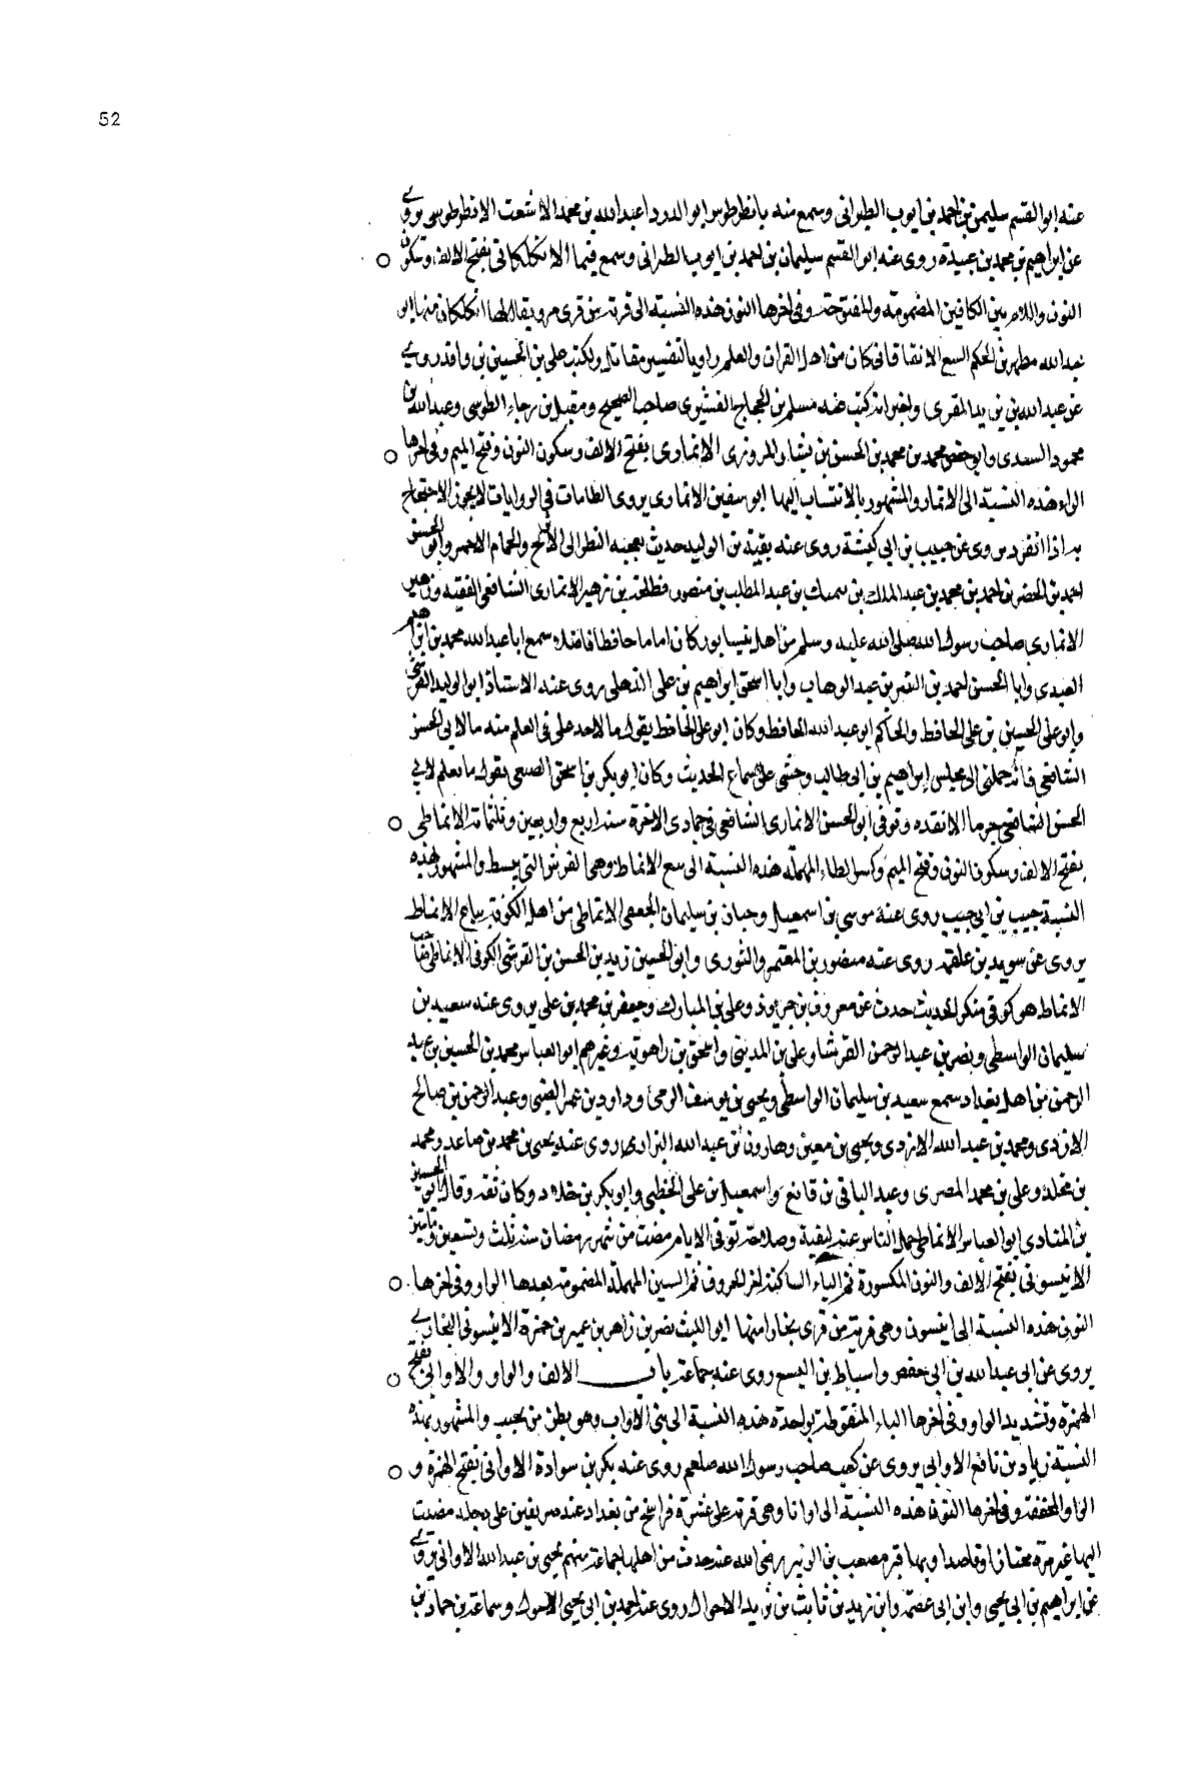 52
عنه ابو القسم سليمن بن احمد بن ايوب الطبراني وسمع منه بانطرطوس ابو الدرداء عبد الله بن محمد الاشعث الانطرطوسي يروي
عن ابراهيم بن محمد بن عبيدة روى عنه ابو القسم سليمان بن احمد بن ايوب الطبراني وسمع فيما الانكلكاني بفتح الالف وسكون
النون واللام بين الكافين المضمومة والمفتوحة وفي اخرها النون هذه النسبة الى قرية من قرى مرو يقال لها انكلكان منها ابو
عبد الله مطهر بن الحكم البيع الانقلقاني كان من اهل القران والعلم راويا لتفسير مقاتل ولكتب علي بن الحسين بن واقد روى
عن عبد الله بن يزيد المقرى واخبر انه كتب عنه مسلم بن الحجاج القشيرى صاحب الصحيح ومقبل بن رجاء الطوسى وعبد الله بن
محمود السعدى وابو حفص محمد بن محمد بن الحسن بن نيشا والمروزى الانمارى بفتح الالف وسكون النون وفتح الميم وفي اخرها
الراء هذه النسبة الى الانمار والمشهور بالانتساب اليها ابو سفين الانمارى يروى الطامات في الروايات لا يجوز الاحتجاج
به اذا انفرد يروى عن حبيب بن ابي كبشة روى عنه بقية بن الوليد حديث يعجبه النظر الى الاترج والحمام الاحمر وابو الحسن
احمد بن الخضر بن احمد بن محمد بن عبد الملك بن سميك بن عبد المطلب بن منصور بن طلحة بن زهير الانمارى الشافعى الفقيه وزهير
الانمارى صاحب رسول الله صلى الله عليه وسلم من اهل نيسابور كان اماما حافظا فاضلا سمع ابا عبد الله محمد بن ابراهيم
العبدى وابا الحسن احمد بن النضر بن عبد الوهاب وابا اسحق ابراهيم بن على الذهلى روى عنه الاستاذ ابو الوليد القرشي
وابو على الحسين بن على الحافظ والحاكم ابو عبد الله الحافظ وكان ابو على الحافظ يقول ما لاحد على في العلم منه ما لابي الحسن
الشافعى فانه حملنى الى مجلس ابراهيم بن ابي طالب وحثنى على سماع الحديث وكان ابو بكر بن اسحق الصبغى يقول ما تعلم لابي
الحسن الشافعى جرما الا انقده وتوفى ابو الحسن الانمارى الشافعى في جمادى الاخرة سنة اربع واربعين وثلثمائة الانماطى
بفتح الالف وسكون النون وفتح الميم وكسر الطاء المهملة هذه النسبة الى بيع الانماط وهى الفرش التى تبسط والمشهور بهذه
النسبة حبيب بن ابي حبيب روى عنه موسى بن اسمعيل وحبان بن سليمان الجعفى الانماطى من اهل الكوفة بياع الانماط
يروى عن سويد بن علقمة روى عنه منصور بن المعتمر والثورى وابو الحسين زيد بن الحسن بن القرشى الكوفى الانماطى صاحب
الانماط هو كوفى منكر الحديث حدث عن معروف بن خربوذ وعلى بن المبارك وجعفر بن محمد بن على يروى عنه سعيد بن
سليمان الواسطى ونصر بن عبد الرحمن القرشا وعلى بن المدينى واسحق بن راهويه وغيرهم ابو العباس محمد بن الحسين بن عبد
الرحمن من اهل بغداد سمع سعيد بن سليمان الواسطى ويحيى بن يوسف الزمى وداود بن عمرو الضبى وعبد الرحمن بن صالح
الازدى ومحمد بن عبد الله الازدى ويحيى بن معين وهارون بن عبد الله البزار روى عنه يحيى بن محمد بن صاعد ومحمد
بن مخلد وعلى بن محمد المصرى وعبد الباقى بن قانع واسمعيل بن على الخطبى وابو بكر بن خلاد وكان ثقة وقال ابو الحسين
بن المنادى ابو العباس الانماطى حمل الناس عنه لثقة وصلاحة توفى لايام مضت من شهر رمضان سنة ثلث وتسعين ومايتين
الانيسونى بفتح الالف والنون المكسورة ثم الياء الساكنة اخر الحروف ثم السين المهملة المضمومة بعدها الواو وفي اخرها
النون هذه النسبة الى انيسون وهى قرية من قرى بخارا منها ابو الليث نصر بن زاهر بن عمير بن حمزة الانيسونى البخارى
يروى عن ابي عبد الله بن ابي حفص واسباط بن اليسع روى عنه جماعة باب الالف والواو والاوابى بفتح
الهمزة وتشديد الواو وفي اخرها الباء المنقوطة بواحدة هذه النسبة الى بنى الاواب وهو بطن من تجيب والمشهور بهذه
النسبة زياد بن نافع الاوابى يروى عن كعب صاحب رسول الله صلعم روى عنه بكر بن سوادة الاوانى بفتح الهمزة و
الواو المخففة وفي اخرها النون هذه النسبة الى اوانا وهى قرية على عشرة فراسخ من بغداد عند صريفين على دجلة مضيت
اليها غير مرة مجتازا وقاصدا وبها قبر مصعب بن الزبير رضى الله عنه حدث من اهلها جماعة منهم يحيى بن عبد الله الاوانى يروى
عن ابراهيم بن ابي يحيى وابن ابي عصمة وابن زيد بن ثابت بن يزيد الاحول روى عنه احمد بن ابي يحيى الاحول وسماعة بن حماد بن